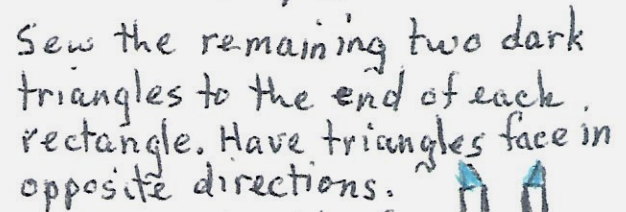 Sew the remaining two dark
triangles to the end of each
rectangle. Have triangles face in
opposite directions.